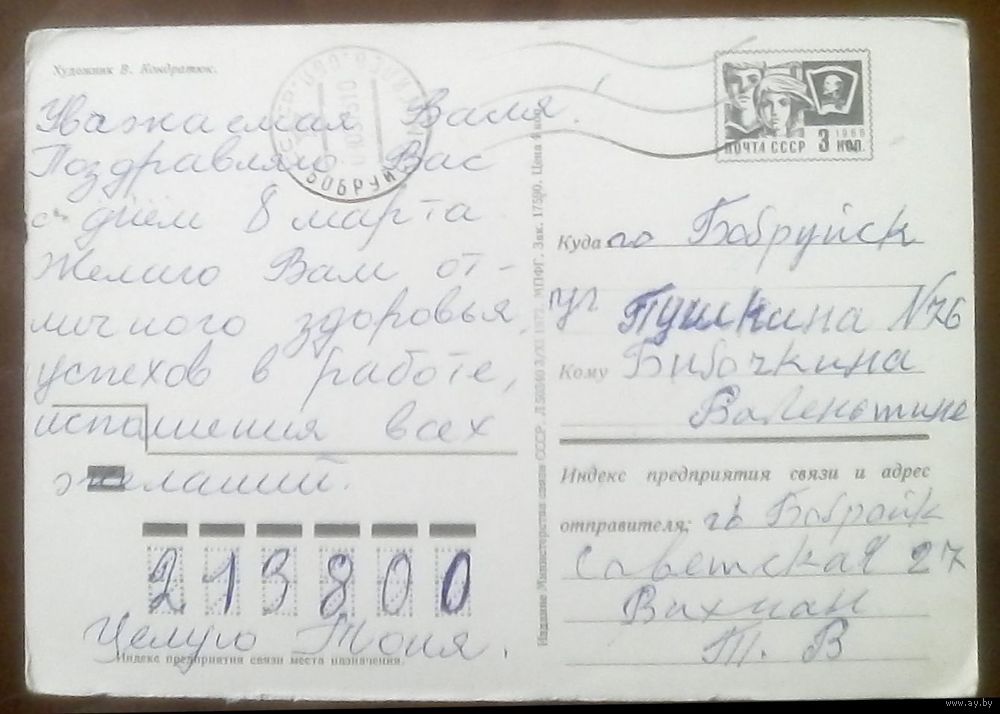 Художник В. Кондратюк.
Уважаемая Валя!
Поздравляю Вас
с днем 8 марта
Желаю Вам от-
личного здоровья,
успехов в работе,
исполнения всех
желаний.
213800
Целую Тоня.
Индекс предприятия связи места назначения.
БОБРУЙ
Издание Министерства связи СССР. 3/XI 1972. МПФГ. Зак. 17590. Цена 4 коп.
ПОЧТА СССР 3 коп.
1966
Куда го Бобруйск
ул Пушкина №76
Кому Бибочкина
Валеньтине
Индекс предприятия связи и адрес
отправителя: гв Бобройк
Советская 27
Вихман
Т. В
www.ay.by